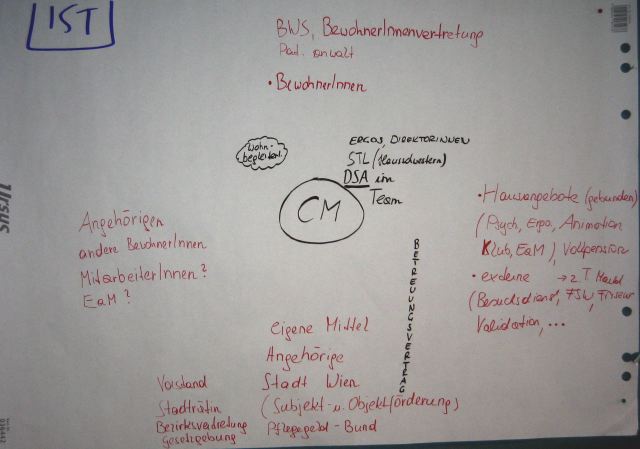 IST
BWS, BewohnerInnenvertretung
Pat. anwalt
• BewohnerInnen
Wohn-
begleiter!
ERGOS, DIREKTORINNEN
STL (Hausschwestern)
DSA im
Team
CM
Angehörigen
andere BewohnerInnen
MitarbeiterInnen?
EaM?
• Hausangebote (gebunden)
(Psych, Ergo, Animation
Klub, EaM), Vollpension
• externe → 2. T. Markt
(Besuchsdienst, FSW, Friseur
Validation, ...
BETREUUNGSVERTRAG
eigene Mittel
Angehörige
Stadt Wien
(Subjekt- u. Objektförderung)
Pflegegeld - Bund
Vorstand
Stadträtin
Bezirksvertretung
Gesetzgebung
Ursus
036442